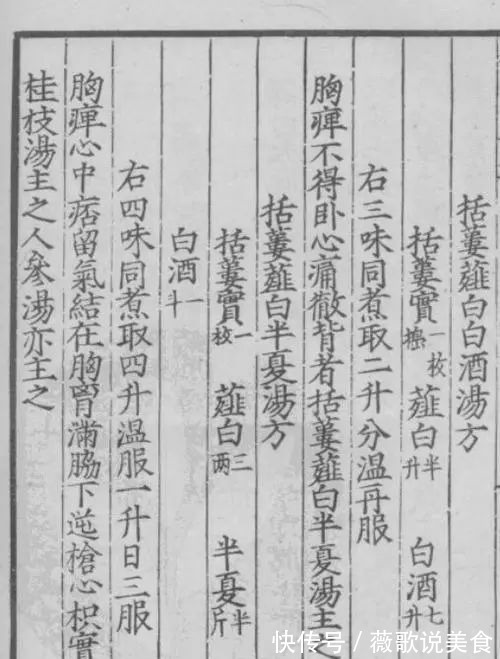 括蔞薤白白酒湯方
括蔞實一枚擣 薤白半升 白酒七升
右三味同煮取二升分温再服
胸痺不得卧心痛徹背者括蔞薤白半夏湯主之
括蔞薤白半夏湯方
括蔞實一枚 薤白三两 半夏半斤
白酒一斗
右四味同煮取四升温服一升日三服
胸痺心中痞留氣結在胸胷滿脇下逆搶心枳實
桂枝湯主之人參湯亦主之
快传号/薇歌说美食